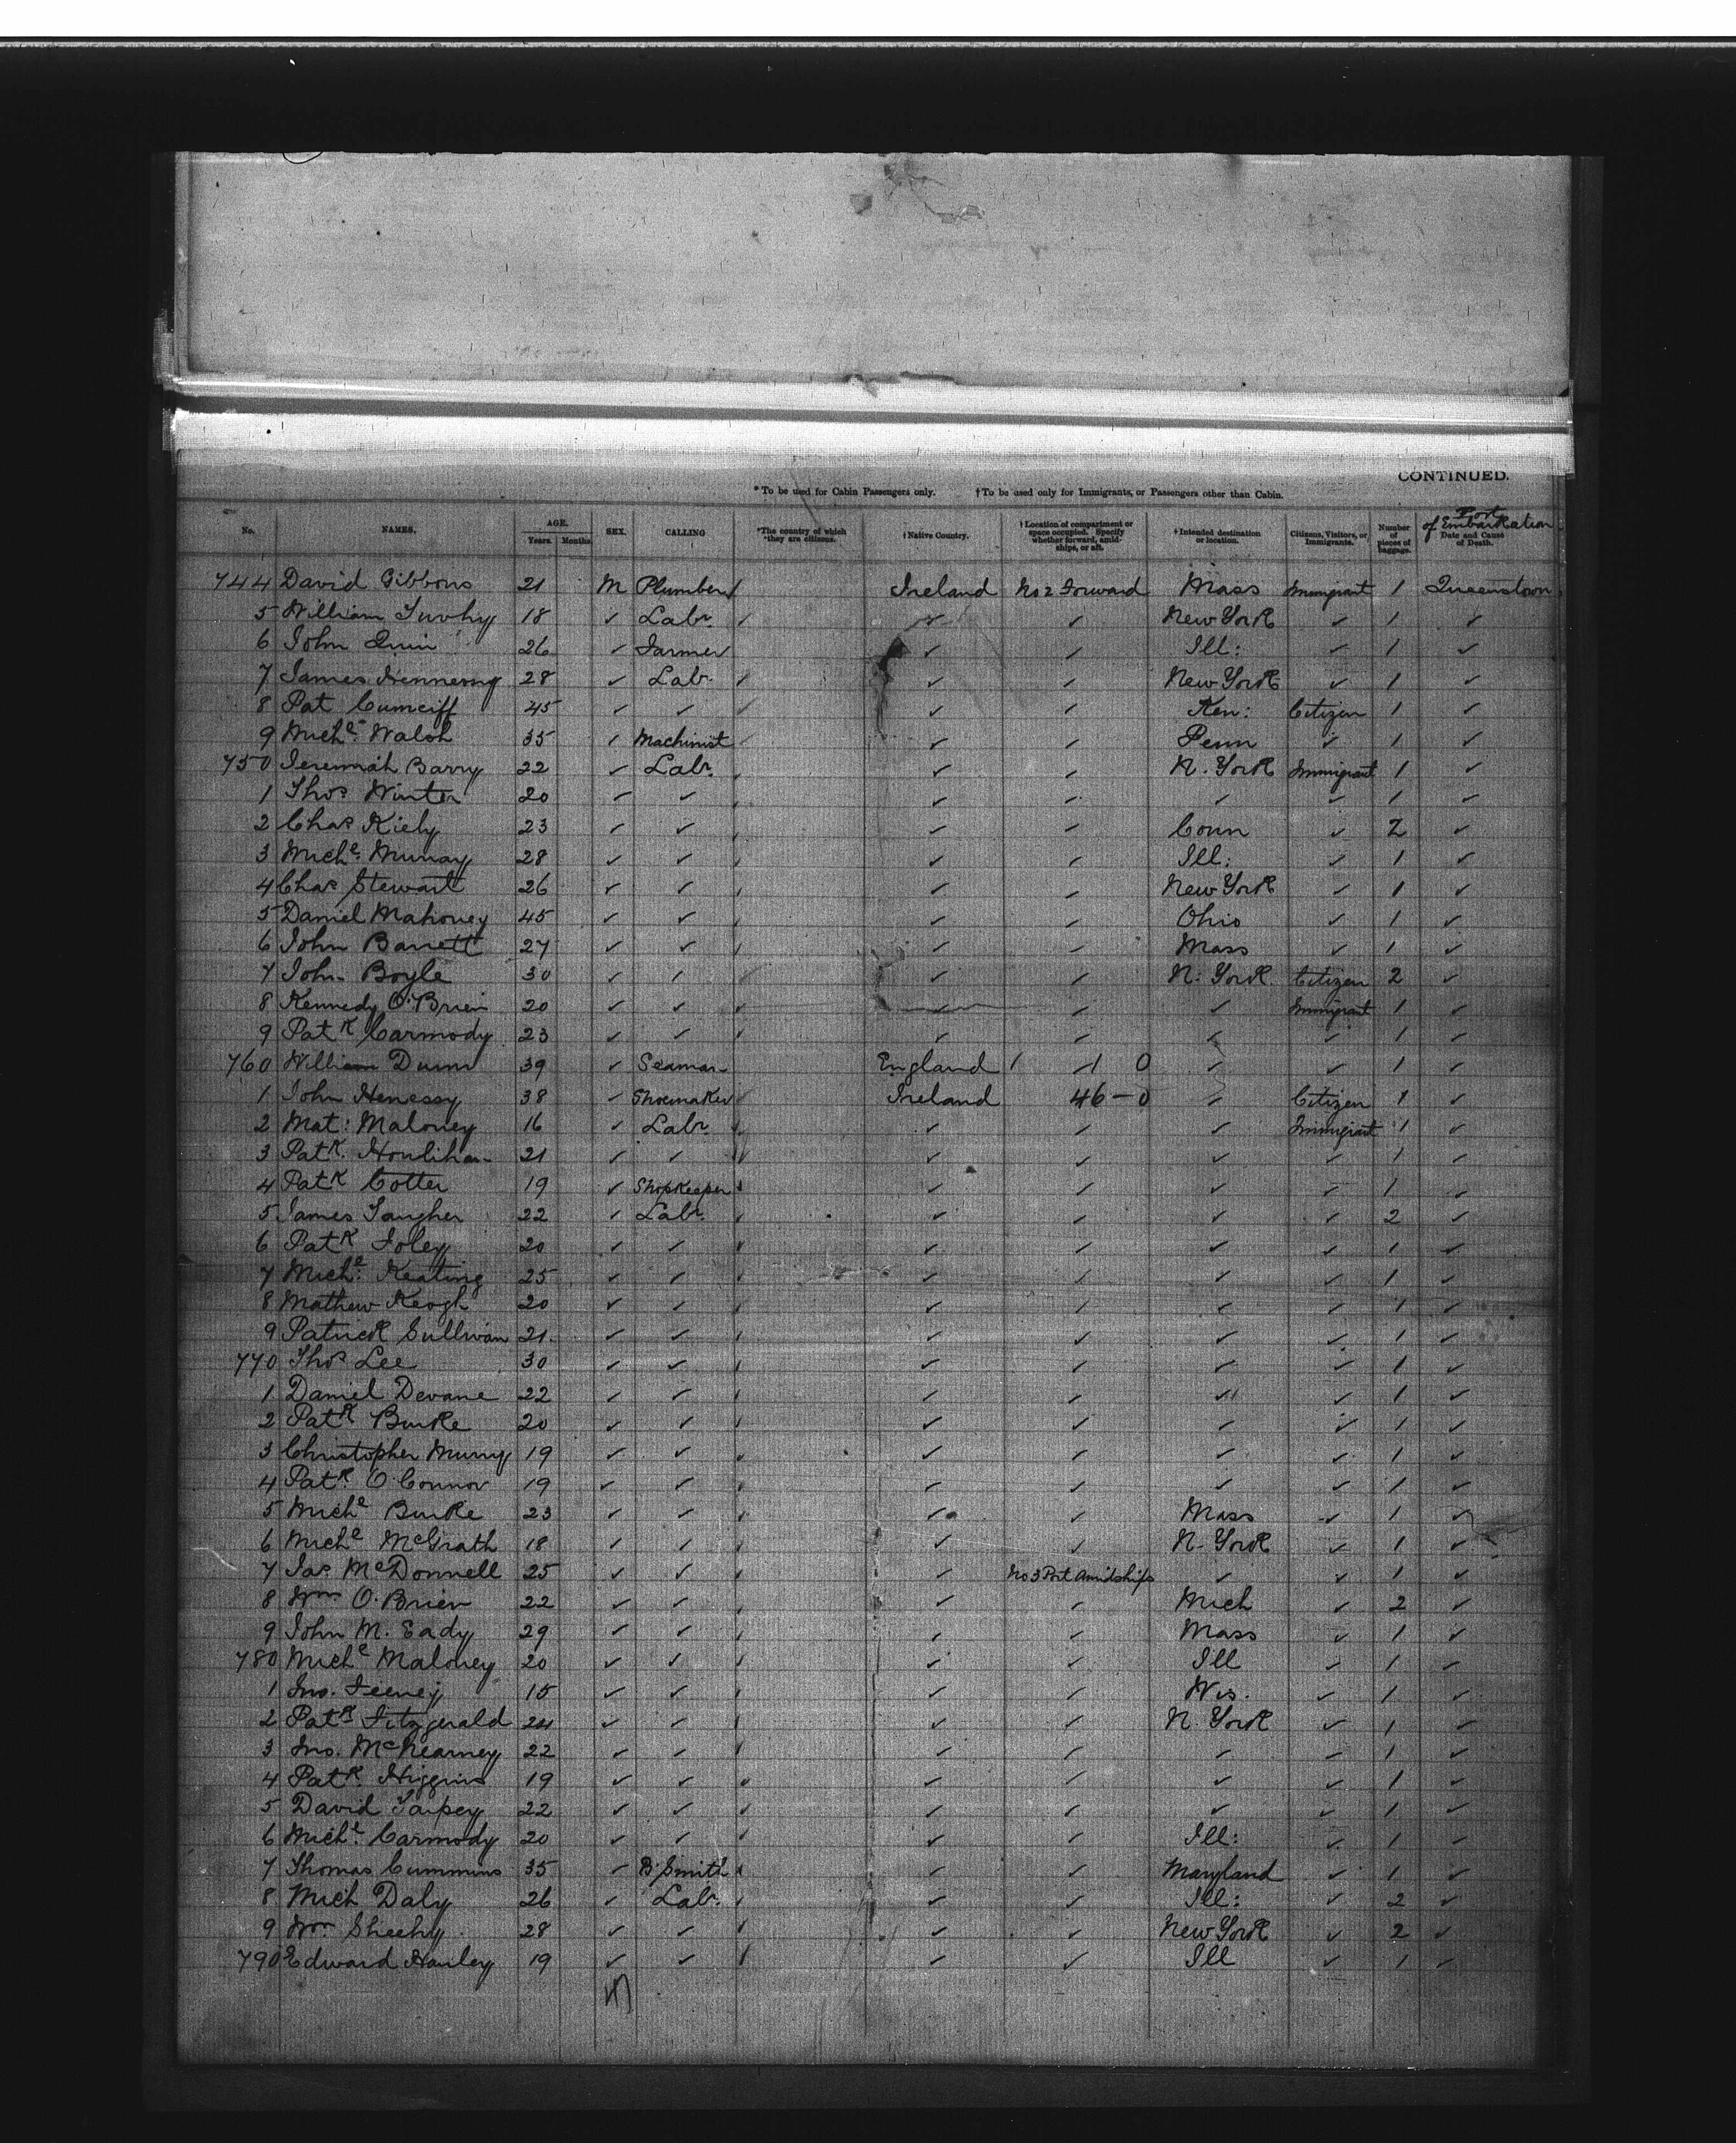 CONTINUED.
* To be used for Cabin Passengers only. † To be used only for Immigrants, or Passengers other than Cabin.
No. NAMES. AGE. Years. Months. SEX. CALLING *The country of which *they are citizens. †Native Country. †Location of compartment or space occupied. Specify whether forward, amid-ships, or aft. †Intended destination or location. Citizens, Visitors, or Immigrants. Number of pieces of baggage. Port of Embarkation Date and Cause of Death.
744 David Gibbons 21 M Plumber Ireland No 2 Forward Mass Immigrant 1 Queenstown
5 William 18 ✓ Labr. ✓ ✓ New York ✓ 1 ✓
6 John Quin 26 ✓ Farmer ✓ ✓ Ill: ✓ 1 ✓
7 James Hennessy 28 ✓ Labr. ✓ ✓ New York ✓ 1 ✓
8 Pat 45 ✓ ✓ ✓ ✓ Ken: Citizen 1 ✓
9 Michl. Walsh 35 ✓ Machinist ✓ ✓ Penn ✓ 1 ✓
750 Jeremiah Barry 22 ✓ Labr. ✓ ✓ N. York Immigrant 1 ✓
1 Thos Winter 20 ✓ ✓ ✓ ✓ ✓ ✓ 1 ✓
2 Chas Kiely 23 ✓ ✓ ✓ ✓ Conn ✓ 2 ✓
3 Michl. Murray 28 ✓ ✓ ✓ ✓ Ill: ✓ 1 ✓
4 Chas Stewart 26 ✓ ✓ ✓ ✓ New York ✓ 1 ✓
5 Daniel Mahoney 45 ✓ ✓ ✓ ✓ Ohio ✓ 1 ✓
6 John Barrett 27 ✓ ✓ ✓ ✓ Mass ✓ 1 ✓
7 John Boyle 30 ✓ ✓ ✓ ✓ N. York Citizen 2 ✓
8 Kennedy O'Brien 20 ✓ ✓ ✓ ✓ ✓ Immigrant 1 ✓
9 Patk Carmody 23 ✓ ✓ ✓ ✓ ✓ ✓ 1 ✓
760 William Dunn 39 ✓ Seaman England 1 1 0 ✓ ✓ 1 ✓
1 John Henessy 38 ✓ Shoemaker Ireland 46 - 0 ✓ Citizen 1 ✓
2 Mat: Maloney 16 ✓ Labr. ✓ ✓ ✓ Immigrant 1 ✓
3 Patk. Houlihan 21 ✓ ✓ ✓ ✓ ✓ ✓ 1 ✓
4 Patk Cotter 19 ✓ Shopkeeper ✓ ✓ ✓ ✓ 1 ✓
5 James 22 ✓ Labr. ✓ ✓ ✓ ✓ 2 ✓
6 Patk Foley 20 ✓ ✓ ✓ ✓ ✓ ✓ 1 ✓
7 Michl. Keating 25 ✓ ✓ ✓ ✓ ✓ ✓ 1 ✓
8 Mathew Keogh 20 ✓ ✓ ✓ ✓ ✓ ✓ 1 ✓
9 Patrick Sullivan 21. ✓ ✓ ✓ ✓ ✓ ✓ 1 ✓
770 Thos Lee 30 ✓ ✓ ✓ ✓ ✓ ✓ 1 ✓
1 Daniel Devane 22 ✓ ✓ ✓ ✓ ✓ ✓ 1 ✓
2 Patk Burke 20 ✓ ✓ ✓ ✓ ✓ ✓ 1 ✓
3 Christopher Murry 19 ✓ ✓ ✓ ✓ ✓ ✓ 1 ✓
4 Patk. O'Connor 19 ✓ ✓ ✓ ✓ ✓ ✓ 1 ✓
5 Michl Burke 23 ✓ ✓ ✓ ✓ Mass ✓ 1 ✓
6 Michl McGrath 18 ✓ ✓ ✓ ✓ N. York ✓ 1 ✓
7 Jas McDonnell 25 ✓ ✓ ✓ No 3 Port Amidships ✓ ✓ 1 ✓
8 Wm O'Brien 22 ✓ ✓ ✓ ✓ Mich ✓ 2 ✓
9 John M. Eady 29 ✓ ✓ ✓ ✓ Mass ✓ 1 ✓
780 Michl Maloney 20 ✓ ✓ ✓ ✓ Ill ✓ 1 ✓
1 Jno. Feeney 15 ✓ ✓ ✓ ✓ Wis. ✓ 1 ✓
2 Patk Fitzgerald 24 ✓ ✓ ✓ ✓ N. York ✓ 1 ✓
3 Jno. McKearney 22 ✓ ✓ ✓ ✓ ✓ ✓ 1 ✓
4 Patk. Higgins 19 ✓ ✓ ✓ ✓ ✓ ✓ 1 ✓
5 David Tarpey 22 ✓ ✓ ✓ ✓ ✓ ✓ 1 ✓
6 Michl. Carmody 20 ✓ ✓ ✓ ✓ Ill: ✓ 1 ✓
7 Thomas Cummins 35 ✓ B'Smith ✓ ✓ Maryland ✓ 1 ✓
8 Mich Daly 26 ✓ Labr. ✓ ✓ Ill: ✓ 2 ✓
9 Wm. Sheehy 28 ✓ ✓ ✓ ✓ New York ✓ 2 ✓
790 Edward Hanley 19 ✓ ✓ ✓ ✓ Ill ✓ 1 ✓